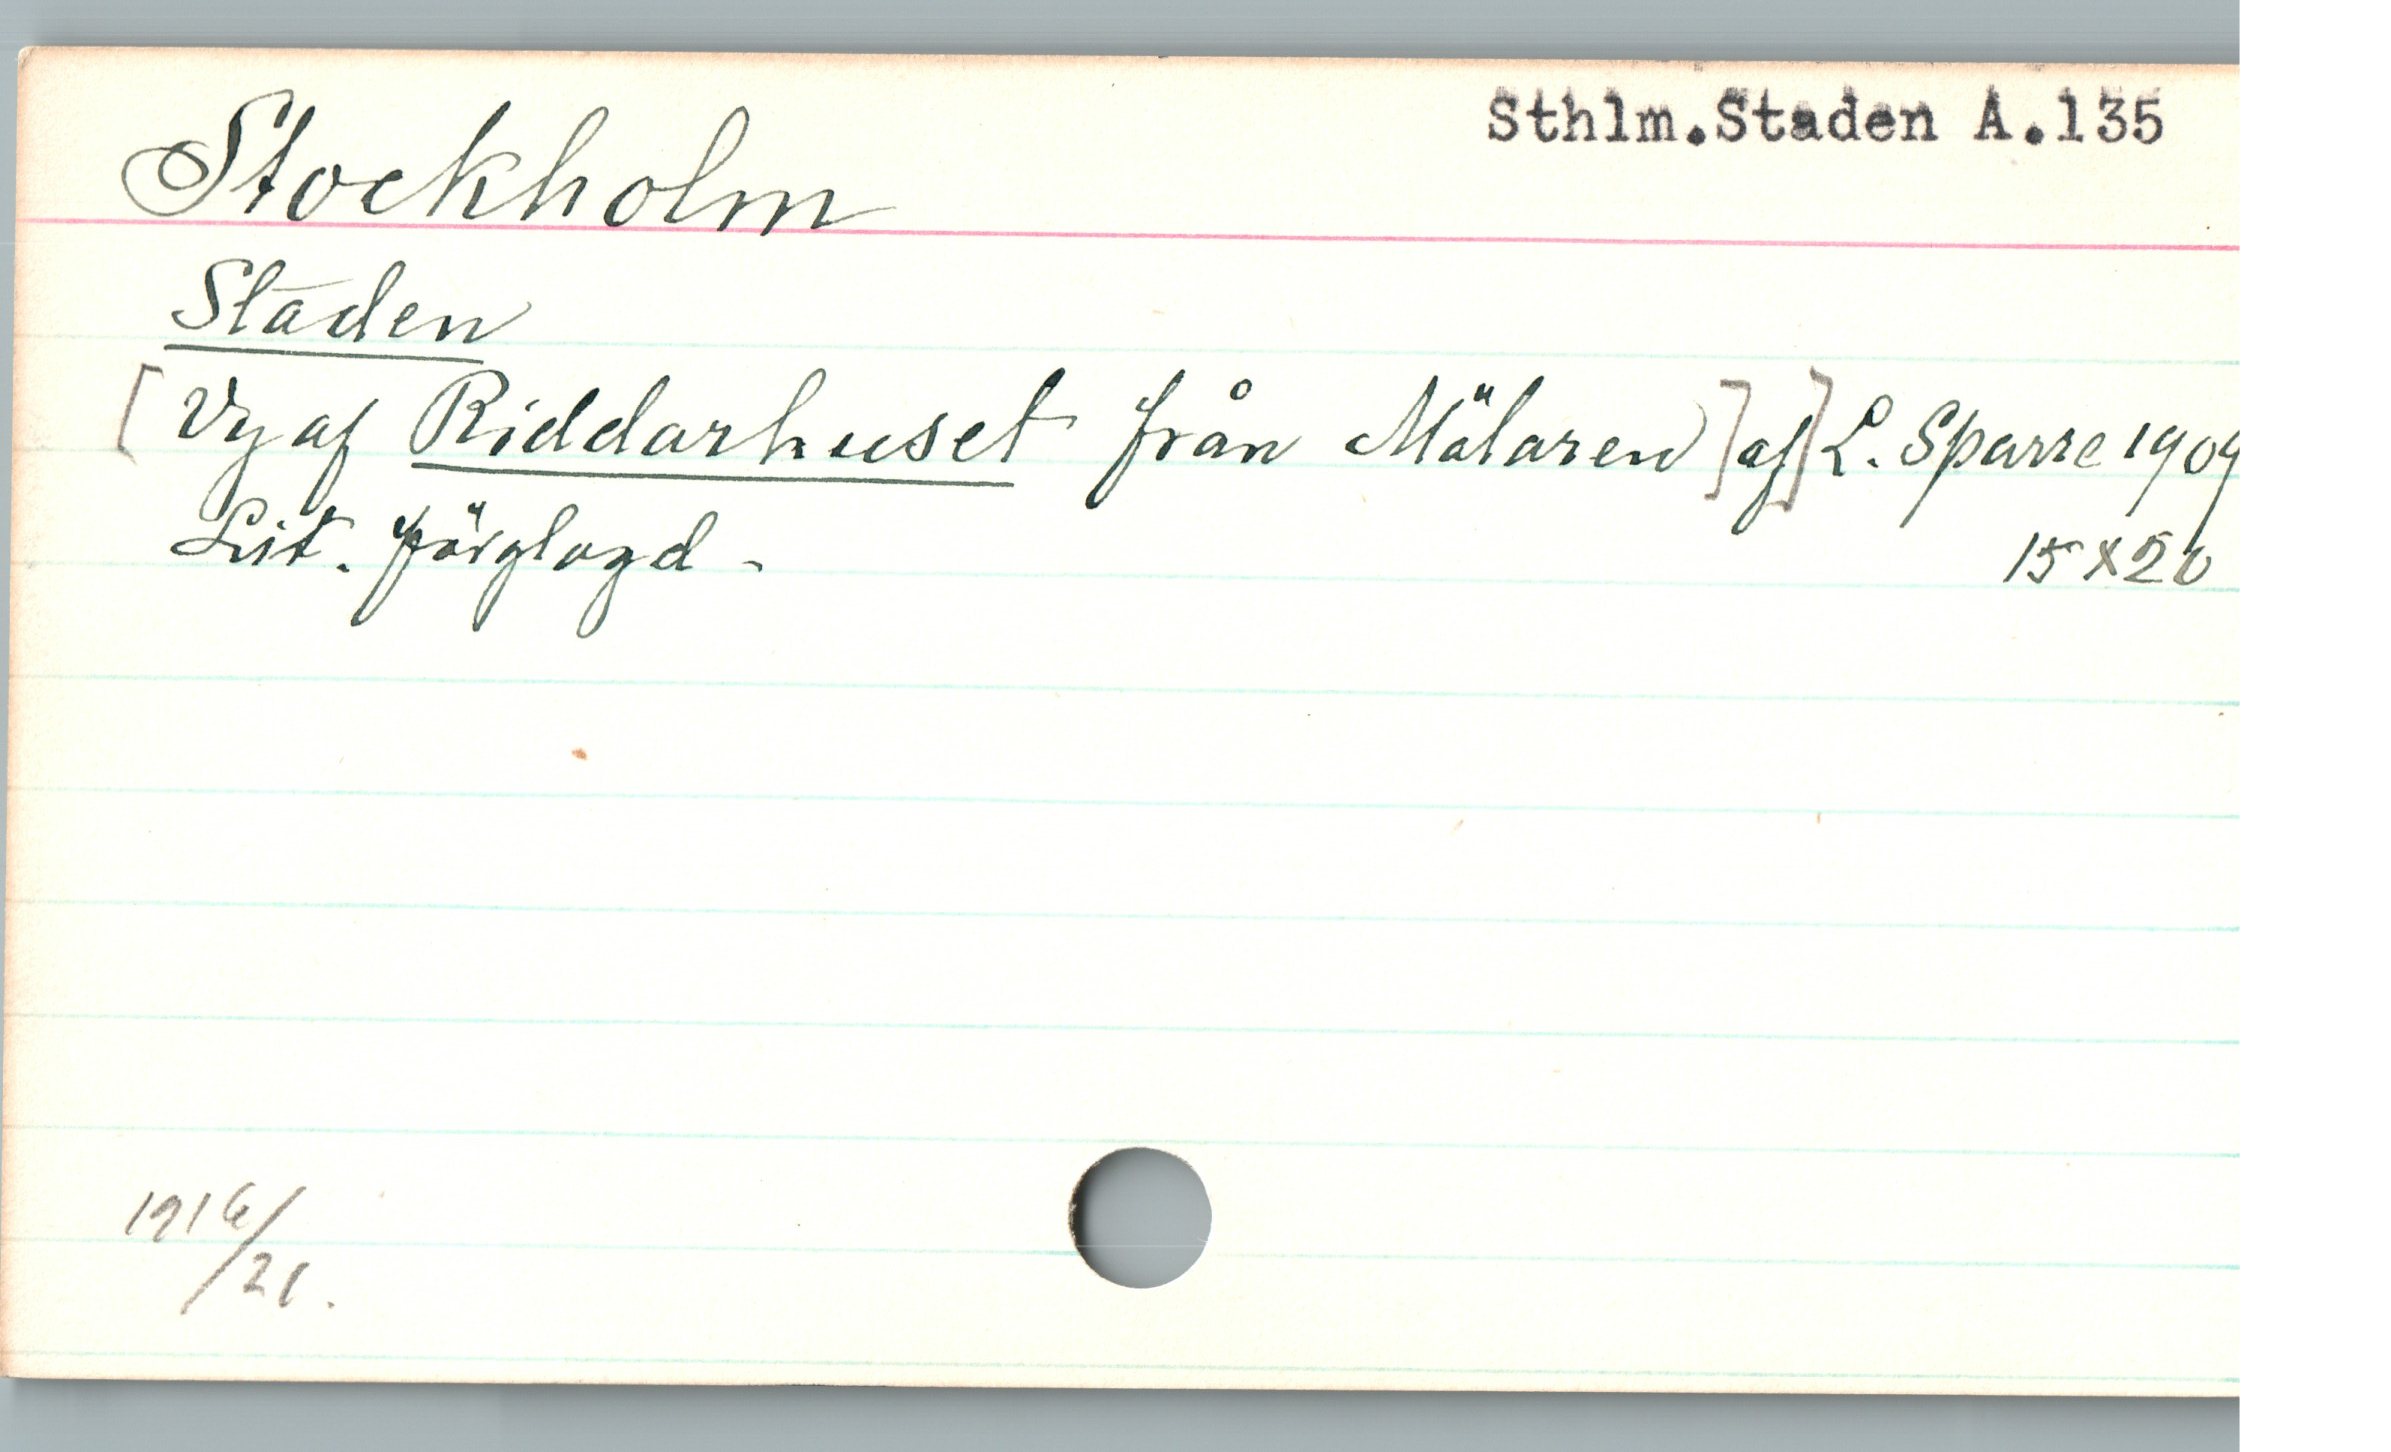 Sthlm.Staden A.135
Stockholm
Staden
[Vy af Riddarhuset från Mälaren] af] L. Sparre 1909
Lit. färglagd.
15 x 20
1916/
/21.